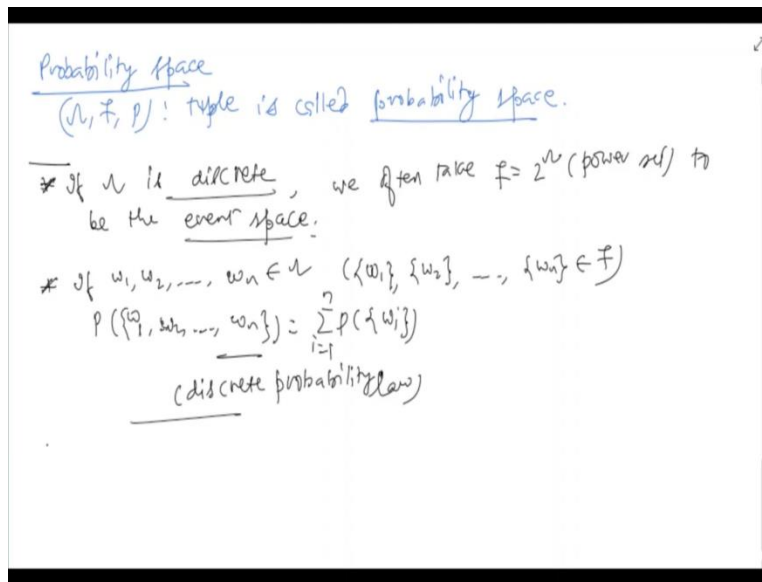 Probability space
(Ω, F, P) : tuple is called probability space.
* If Ω is discrete, we often take F = 2^Ω (power set) to
be the event space.
* If ω₁, ω₂, ..., ωₙ ∈ Ω ({ω₁}, {ω₂}, ..., {ωₙ} ∈ F)
P({ω₁, ω₂, ..., ωₙ}) = ∑_{i=1}^{n} P({ωᵢ})
(discrete probability law)